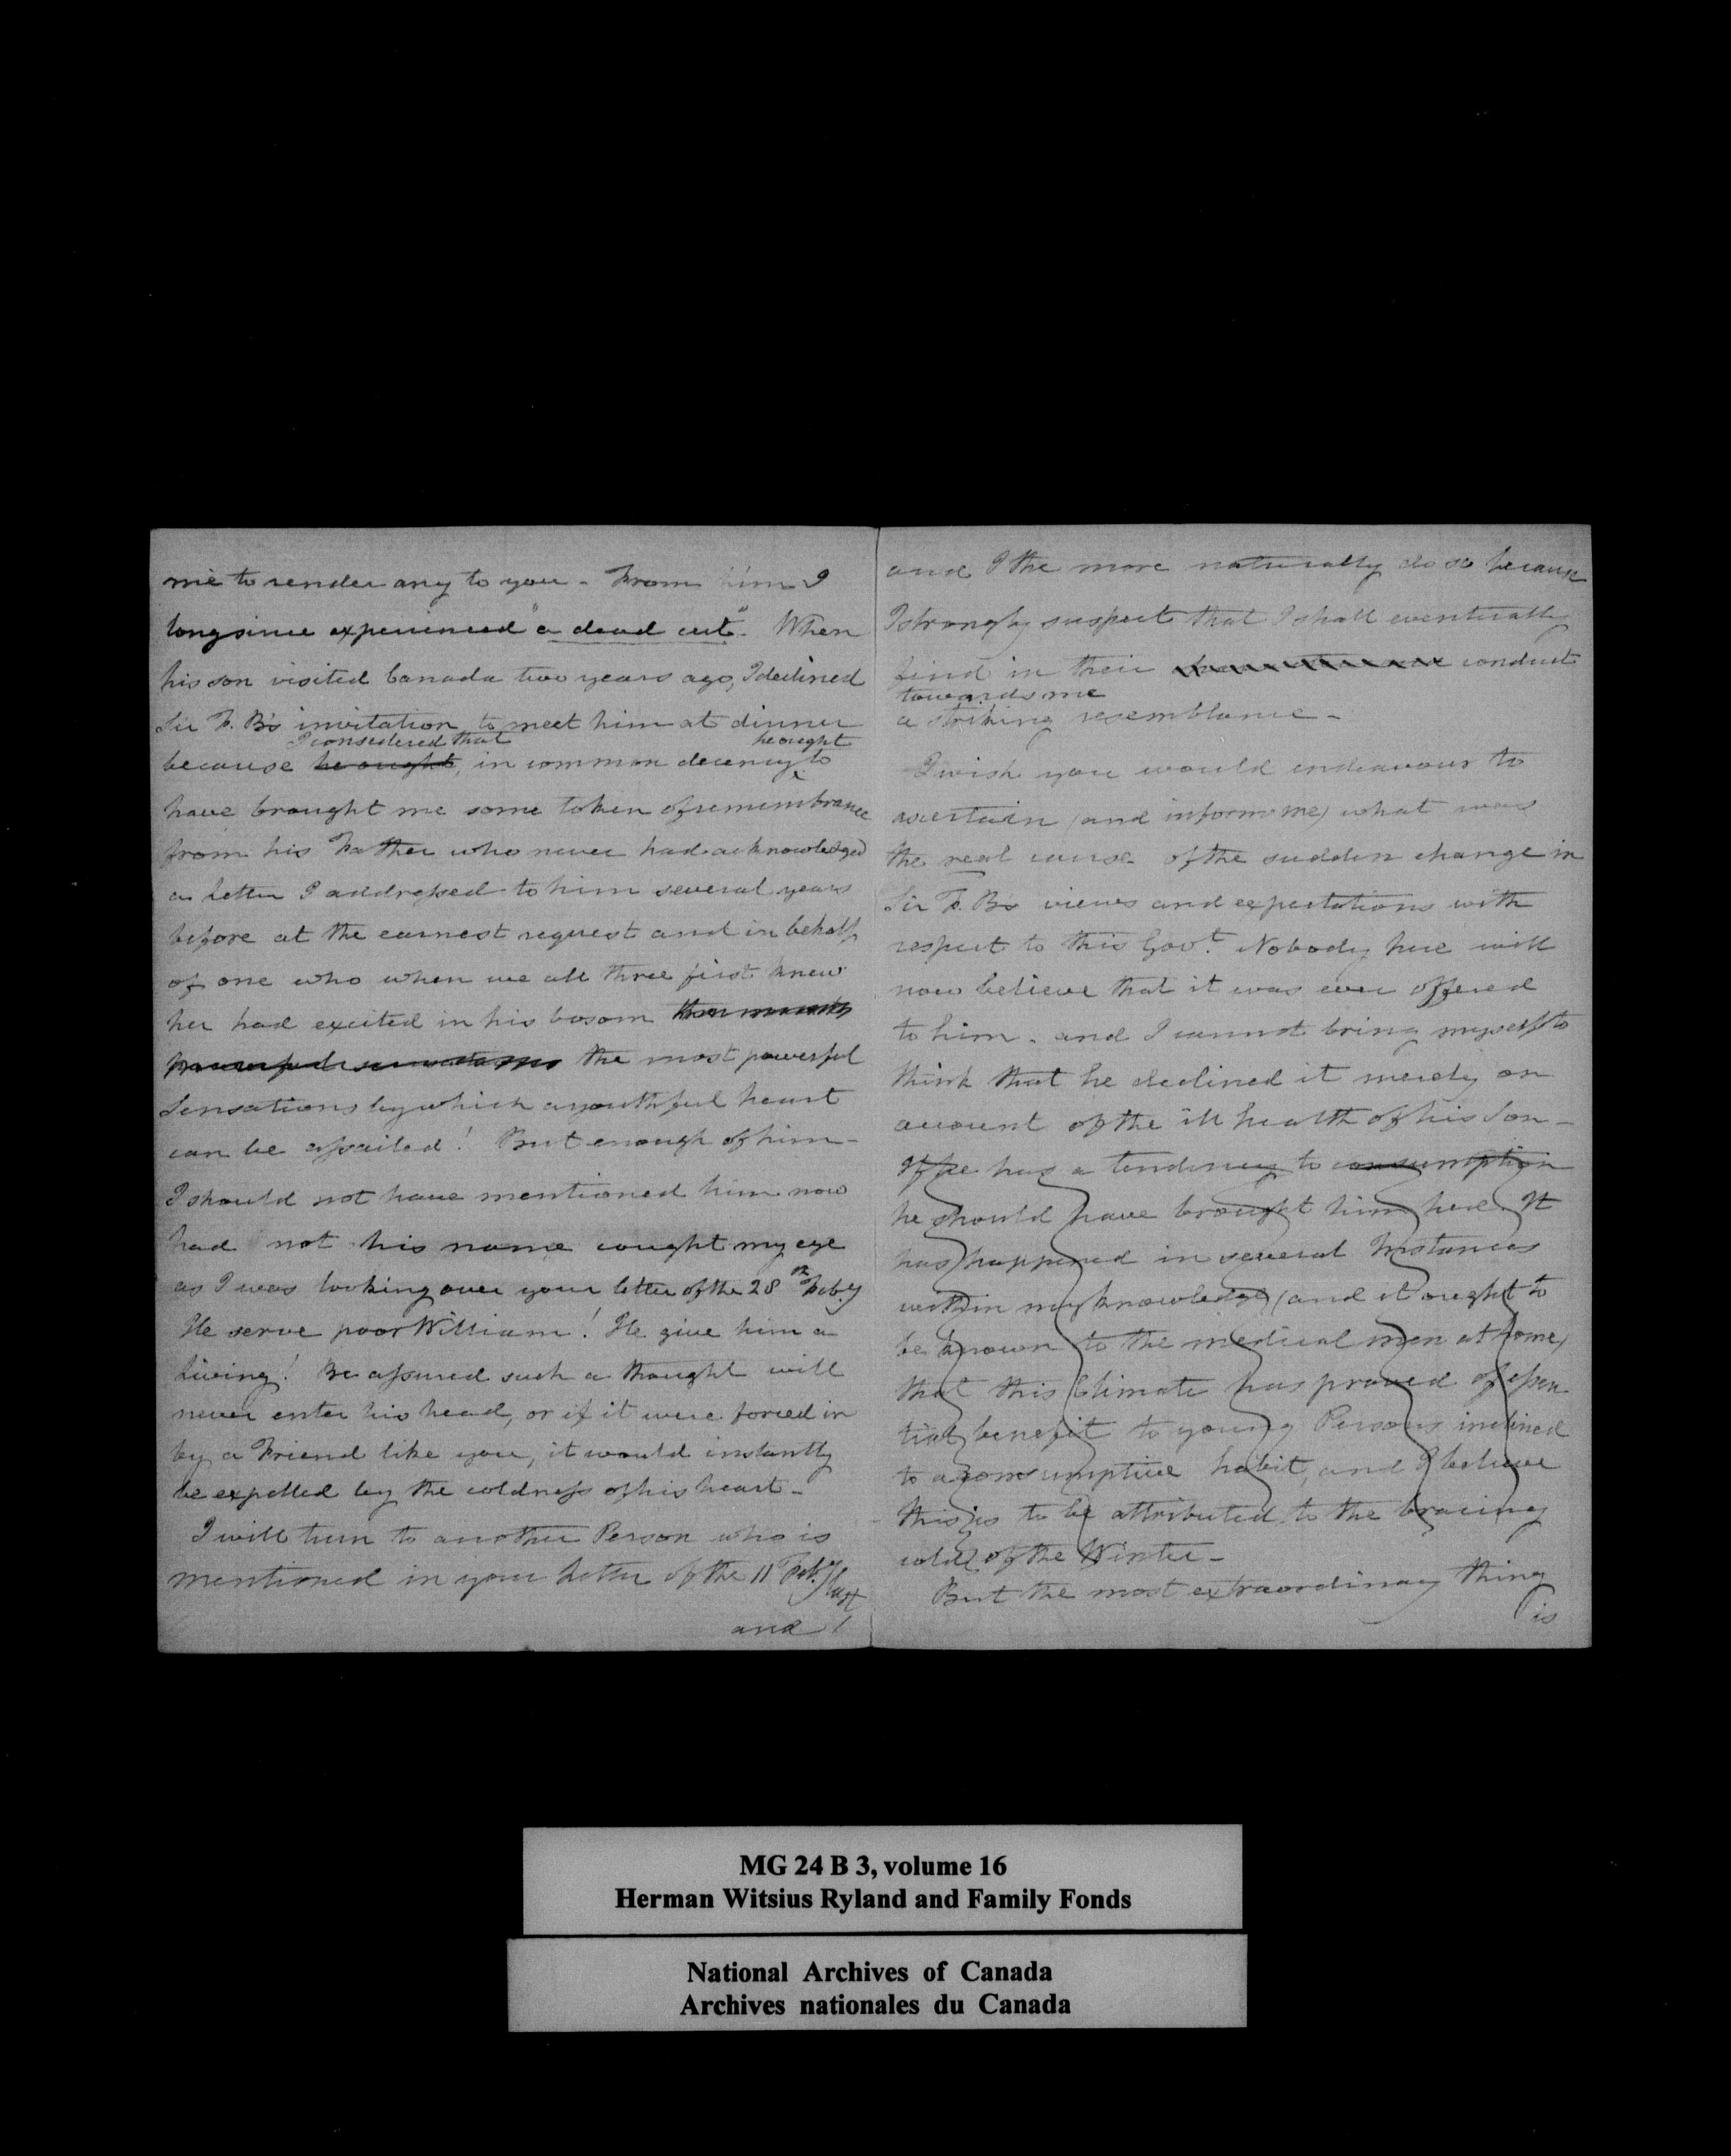 me to render any to you - From him I
long since experienced "a dead cut". When
his son visited Canada two years ago, I declined
Sir F. B's invitation to meet him at dinner
I considered that he ought
because he ought, in common decency to
have brought me some token of remembrance
from his Father who never had acknowledged
a letter I addressed to him several years
before at the earnest request and in behalf
of one who when we all three first knew
her had excited in his bosom
powerful sensations the most powerful
Sensations by which a youthful heart
can be assailed! But enough of him -
I should not have mentioned him now
had not his name caught my eye
as I was looking over your letter of the 28th Feby
He serve poor William! He give him a
Living! Be assured such a thought will
never enter his head, or if it were forced in
by a Friend like you, it would instantly
be expelled by the coldness of his heart -
I will turn to another Person who is
mentioned in your letter of the 11 Feby last
and
and I the more naturally do so because
I strongly suspect that I shall eventually
find in their conduct
towards me
a striking resemblance -
I wish you would endeavour to
ascertain (and inform me) what was
the real cause of the sudden change in
Sir F. B's views and expectations with
respect to this Govt. Nobody here will
now believe that it was ever offered
to him - and I cannot bring myself to
think that he declined it merely on
account of the ill health of his Son -
If he has a tendency to consumption
he should have brought him here. It
has happened in several Instances
within my knowledge (and it ought to
be known to the medical men at home)
that this Climate has proved of essen
tial benefit to young Persons inclined
to a consumptive habit, and I believe
this is to be attributed to the bracing
cold of the Winter -
But the most extraordinary thing
is
MG 24 B 3, volume 16
Herman Witsius Ryland and Family Fonds
National Archives of Canada
Archives nationales du Canada